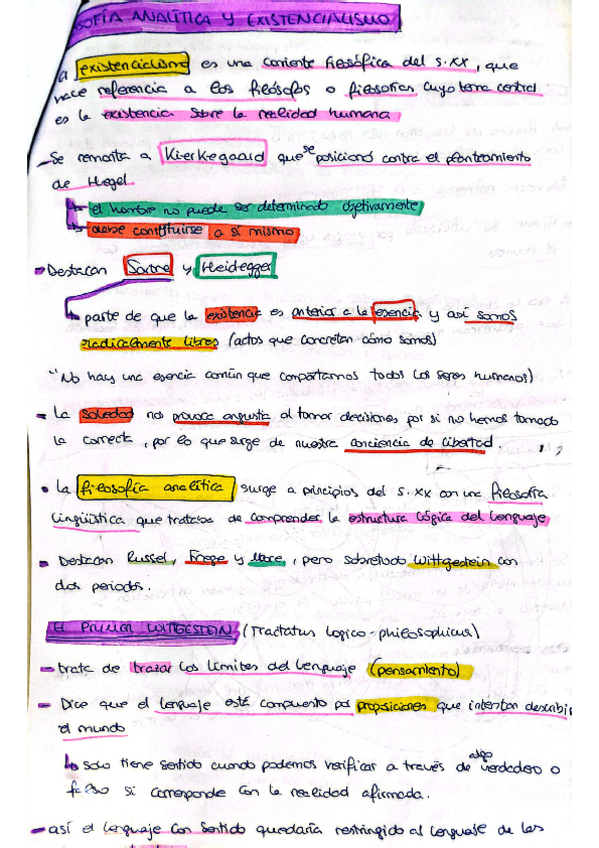 SOFÍA ANALÍTICA Y EXISTENCIALISMO
a existencialismo es una corriente filosófica del s.XX, que
hace referencia a los filósofos o filosofías cuyo tema central
es la existencia sobre la realidad humana
- Se remonta a Kierkegaard que se posicionó contra el planteamiento
de Hegel
↳ el hombre no puede ser determinado objetivamente
↳ debe constituirse a sí mismo
- Destacan Sartre y Heidegger
↳ parte de que la existencia es anterior a la esencia y así somos
radicalmente libres (actos que concretan cómo somos)
"No hay una esencia común que compartamos todos los seres humanos)
- La soledad nos provoca angustia al tomar decisiones por si no hemos tomado
la correcta, por lo que surge de nuestra conciencia de libertad.
• La filosofía analítica surge a principios del s.XX con una filosofía
lingüística que tratase de comprender la estructura lógica del lenguaje
- Destacan Russel, Frege y Moore, pero sobretodo Wittgestein con
dos periodos.
EL PRIMER WITTGESTEIN (Tractatus logico-philosophicus)
- trata de trazar los límites del lenguaje (pensamiento)
- Dice que el lenguaje está compuesto por proposiciones que intentan describir
el mundo
↳ solo tiene sentido cuando podemos verificar a través de algo verdadero o
falso si corresponde con la realidad afirmada.
- así el lenguaje con sentido quedaría restringido al lenguaje de las